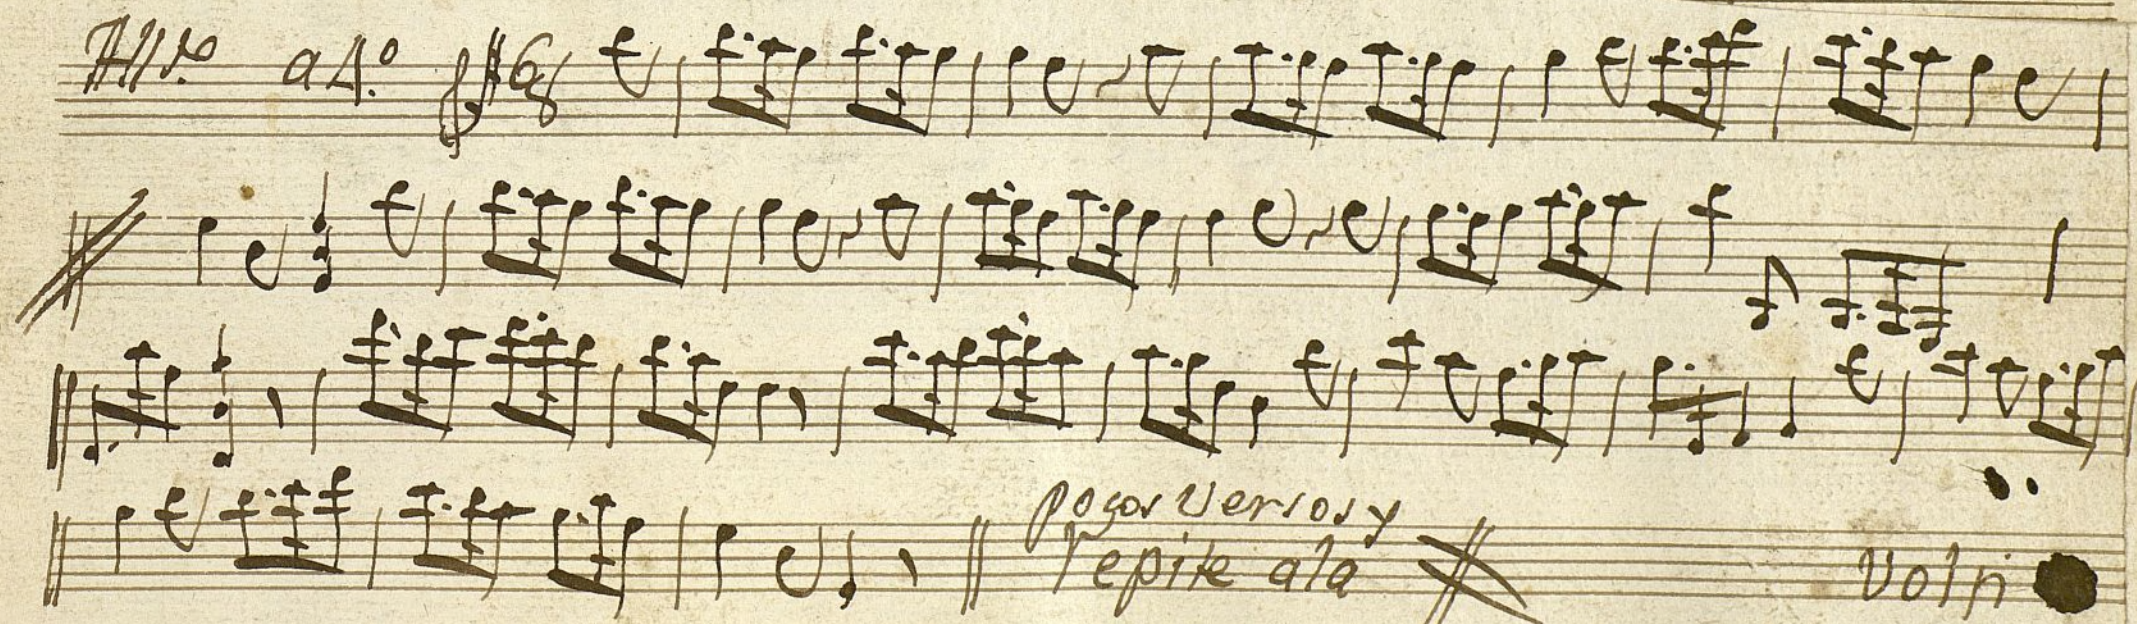 All.º a 4.º 6/8
pogos Versos y
repite ala
Volti